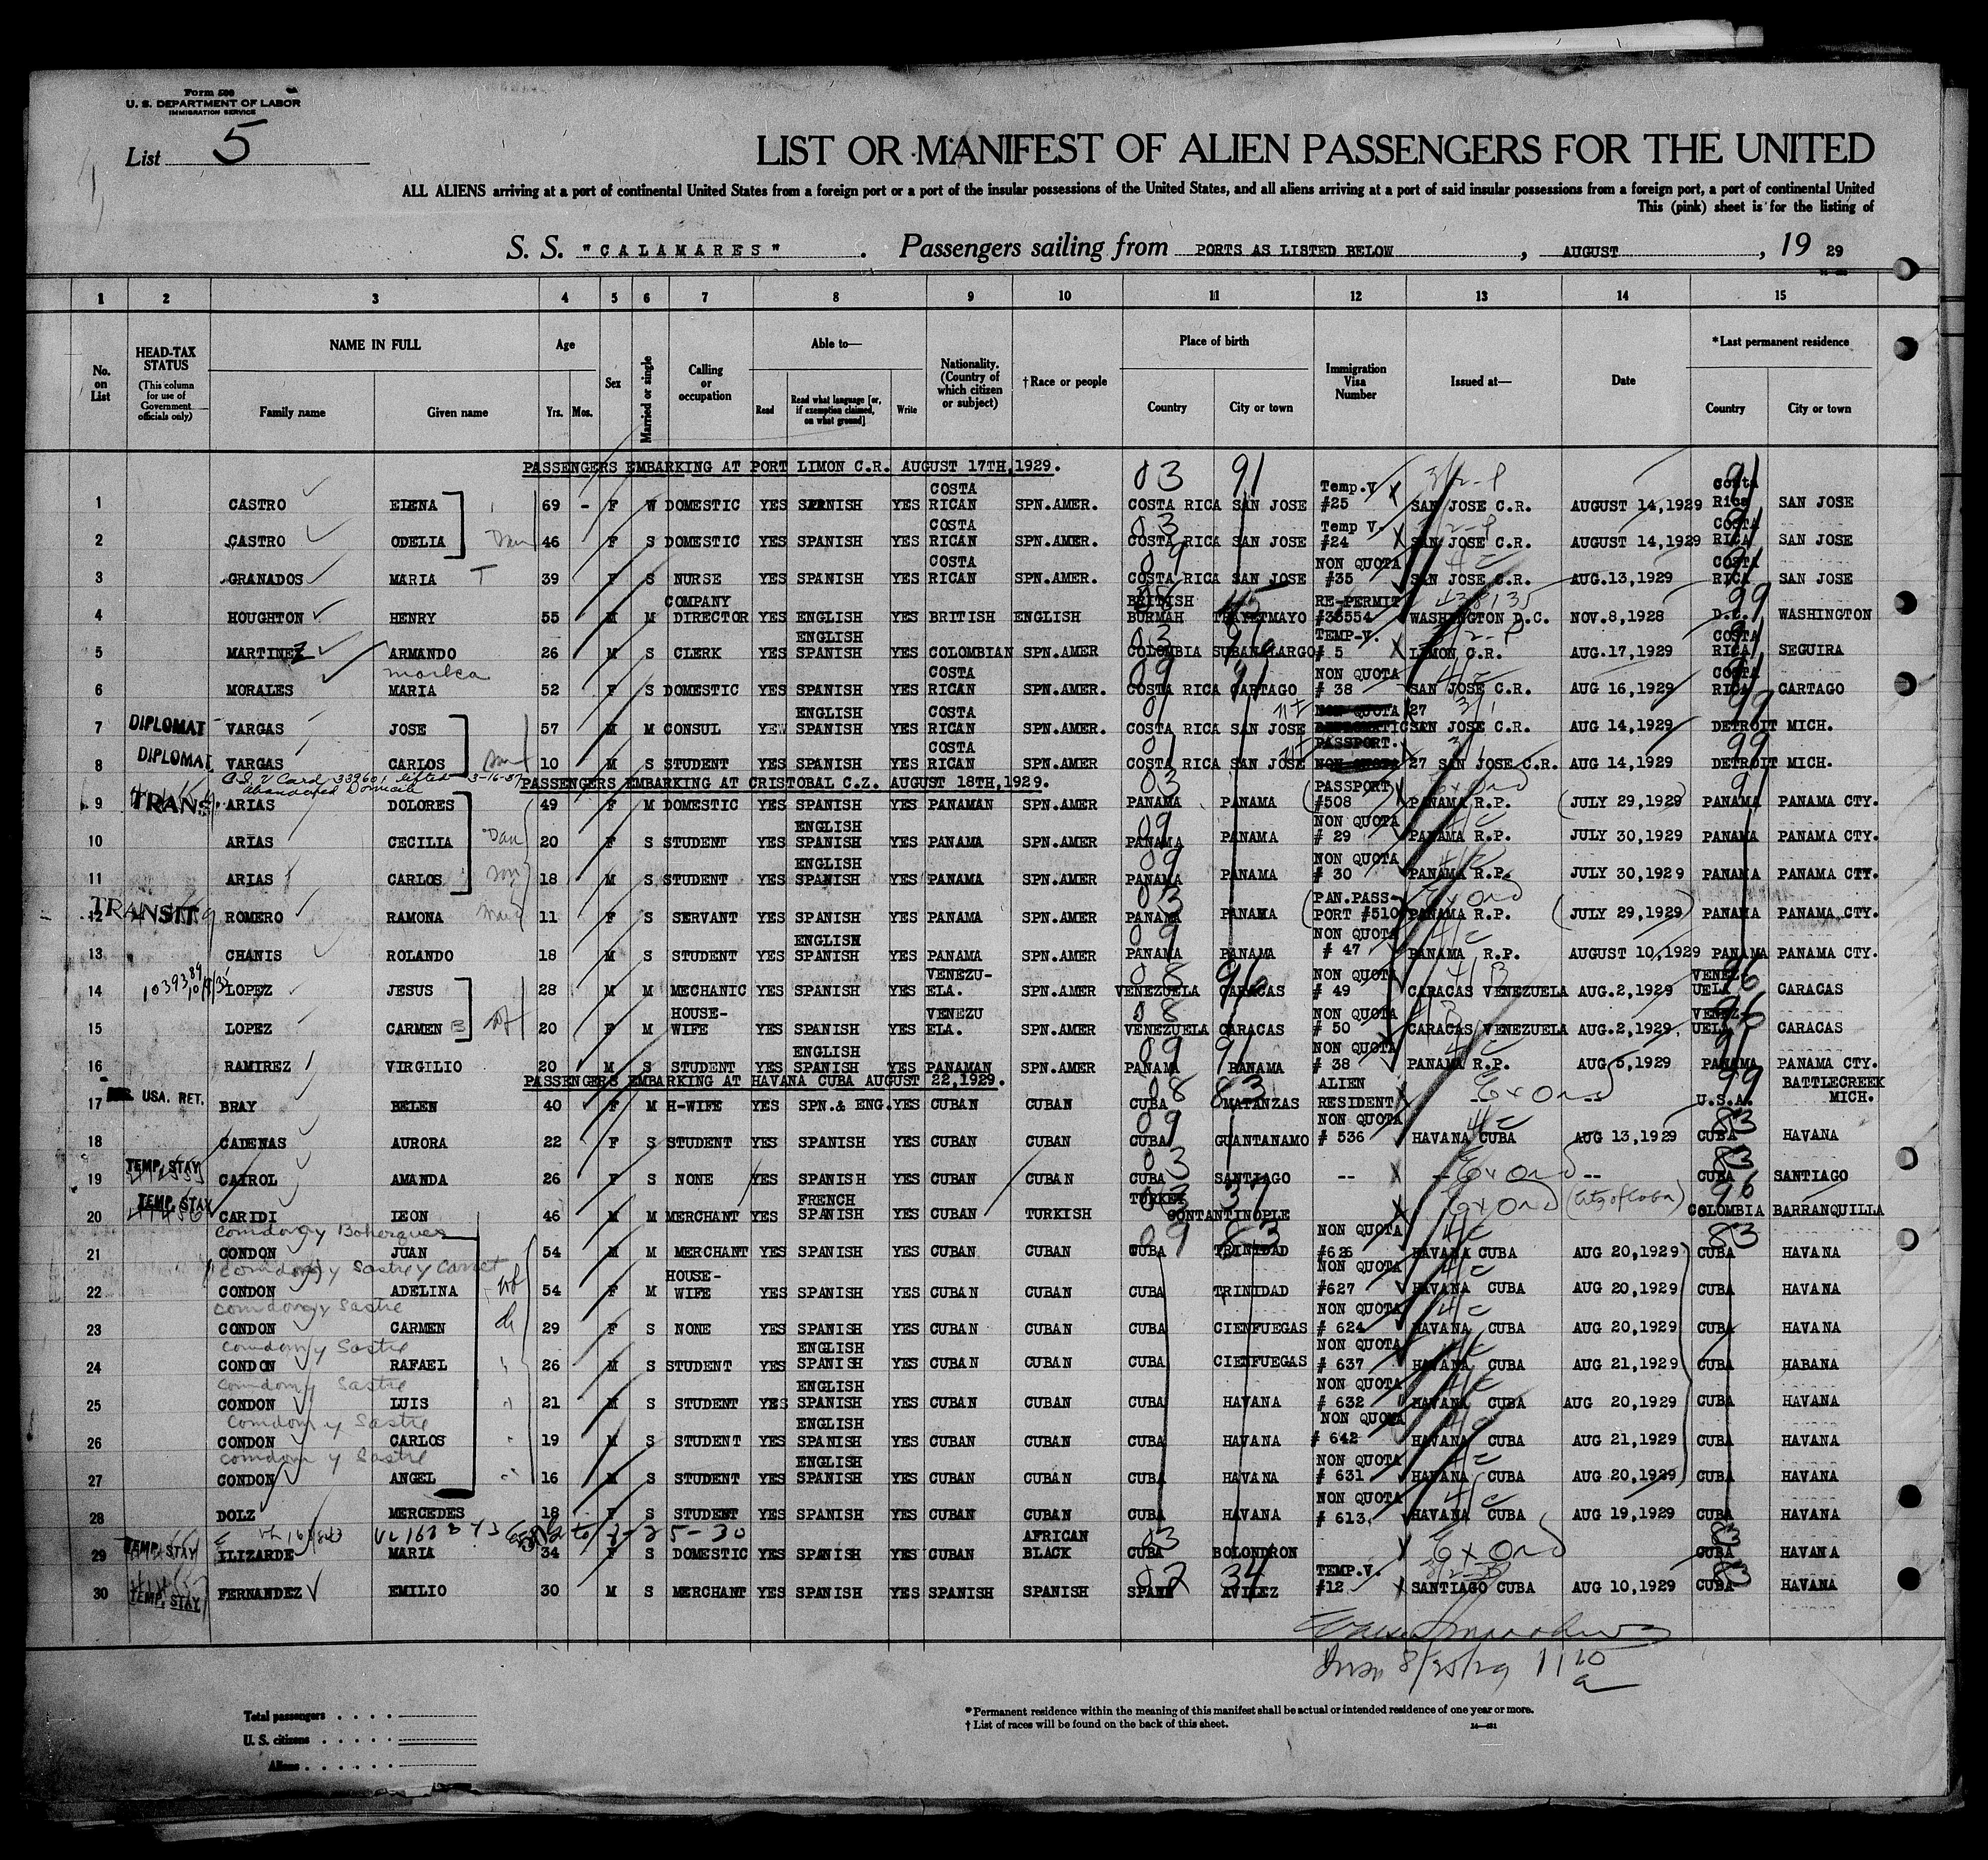 Form 500
U. S. DEPARTMENT OF LABOR
IMMIGRATION SERVICE
List 5
LIST OR MANIFEST OF ALIEN PASSENGERS FOR THE UNITED
ALL ALIENS arriving at a port of continental United States from a foreign port or a port of the insular possessions of the United States, and all aliens arriving at a port of said insular possessions from a foreign port, a port of continental United
This (pink) sheet is for the listing of
S. S. "CALAMARES" . Passengers sailing from PORTS AS LISTED BELOW , AUGUST , 19 29
1 2 3 4 5 6 7 8 9 10 11 12 13 14 15
No. on List
HEAD-TAX STATUS (This column for use of Government officials only)
NAME IN FULL Family name Given name
Age Yrs. Mos.
Sex
Married or single
Calling or occupation
Able to— Read Read what language [or, if exemption claimed, on what ground] Write
Nationality. (Country of which citizen or subject)
†Race or people
Place of birth Country City or town
Immigration Visa Number
Issued at—
Date
*Last permanent residence Country City or town
PASSENGERS EMBARKING AT PORT LIMON C.R. AUGUST 17TH,1929. 03 91
1 CASTRO ELENA 69 - F W DOMESTIC YES SPANISH YES COSTA RICAN SPN.AMER. COSTA RICA SAN JOSE Temp.V #25 SAN JOSE C.R. AUGUST 14,1929 Costa Rica SAN JOSE
2 CASTRO ODELIA 46 F S DOMESTIC YES SPANISH YES COSTA RICAN SPN.AMER. COSTA RICA SAN JOSE Temp V. #24 SAN JOSE C.R. AUGUST 14,1929 COSTA RICA SAN JOSE
3 GRANADOS MARIA T 39 F S NURSE YES SPANISH YES COSTA RICAN SPN.AMER. COSTA RICA SAN JOSE NON QUOTA #35 SAN JOSE C.R. AUG.13,1929 COSTA RICA SAN JOSE
4 HOUGHTON HENRY 55 M M COMPANY DIRECTOR YES ENGLISH YES BRITISH ENGLISH BRITISH BURMAH THAYETMAYO RE-PERMIT #35554 438135 WASHINGTON D.C. NOV.8,1928 D.C. WASHINGTON
5 MARTINEZ ARMANDO 26 M S CLERK YES ENGLISH SPANISH YES COLOMBIAN SPN.AMER COLOMBIA TEMP-V. # 5 LIMON C.R. AUG.17,1929 COSTA RICA SEGUIRA
6 MORALES MARIA 52 F S DOMESTIC YES SPANISH YES COSTA RICAN SPN.AMER. COSTA RICA CARTAGO NON QUOTA # 38 SAN JOSE C.R. AUG 16,1929 COSTA RICA CARTAGO
7 DIPLOMAT VARGAS JOSE 57 M M CONSUL YES ENGLISH SPANISH YES COSTA RICAN SPN.AMER. COSTA RICA SAN JOSE 27 SAN JOSE C.R. AUG 14,1929 DETROIT MICH.
8 DIPLOMAT VARGAS CARLOS 10 M S STUDENT YES SPANISH YES COSTA RICAN SPN.AMER. COSTA RICA SAN JOSE PASSPORT. 27 SAN JOSE C.R. AUG 14,1929 DETROIT MICH.
Card 339601 lifted 3-16-37 Abandoned Domicile
PASSENGERS EMBARKING AT CRISTOBAL C.Z. AUGUST 18TH,1929. 03
9 TRANS. ARIAS DOLORES 49 F M DOMESTIC YES SPANISH YES PANAMAN SPN.AMER PANAMA PANAMA PASSPORT #508 PANAMA R.P. JULY 29,1929 PANAMA PANAMA CTY.
10 ARIAS CECILIA 20 F S STUDENT YES ENGLISH SPANISH YES PANAMA SPN.AMER PANAMA PANAMA NON QUOTA # 29 PANAMA R.P. JULY 30,1929 PANAMA PANAMA CTY.
11 ARIAS CARLOS 18 M S STUDENT YES ENGLISH SPANISH YES PANAMA SPN.AMER PANAMA PANAMA NON QUOTA # 30 PANAMA R.P. JULY 30,1929 PANAMA PANAMA CTY.
12 TRANSIT ROMERO RAMONA 11 F S SERVANT YES SPANISH YES PANAMA SPN.AMER PANAMA PANAMA PAN.PASS- PORT #510 PANAMA R.P. JULY 29,1929 PANAMA PANAMA CTY.
13 CHANIS ROLANDO 18 M S STUDENT YES ENGLISH SPANISH YES PANAMA SPN.AMER. PANAMA PANAMA NON QUOTA # 47 PANAMA R.P. AUGUST 10,1929 PANAMA PANAMA CTY.
14 LOPEZ JESUS 28 M M MECHANIC YES SPANISH YES VENEZU- ELA. SPN.AMER VENEZUELA CARACAS NON QUOTA # 49 CARACAS VENEZUELA AUG.2,1929 VENEZ- UELA CARACAS
15 LOPEZ CARMEN B 20 F M HOUSE- WIFE YES SPANISH YES VENEZU ELA. SPN.AMER VENEZUELA CARACAS NON QUOTA # 50 CARACAS VENEZUELA AUG.2,1929. VENEZ- UELA CARACAS
16 RAMIREZ VIRGILIO 20 M S STUDENT YES ENGLISH SPANISH YES PANAMAN SPN.AMER PANAMA PANAMA NON QUOTA # 38 PANAMA R.P. AUG 5,1929 PANAMA PANAMA CTY.
PASSENGERS EMBARKING AT HAVANA CUBA AUGUST 22,1929. 08 83
17 USA. RET. BRAY BELEN 40 F M H-WIFE YES SPN.& ENG. YES CUBAN CUBAN CUBA MATANZAS ALIEN RESIDENT Ex Ord U.S.A. BATTLECREEK MICH.
18 CADENAS AURORA 22 F S STUDENT YES SPANISH YES CUBAN CUBAN CUBA GUANTANAMO NON QUOTA # 536 HAVANA CUBA AUG 13,1929 CUBA HAVANA
19 TEMP. STAY CAIROL AMANDA 26 F S NONE YES SPANISH YES CUBAN CUBAN CUBA SANTIAGO -- Ex Ord -- CUBA SANTIAGO
20 TEMP. STAY CARIDI LEON 46 M M MERCHANT YES FRENCH SPANISH YES CUBAN TURKISH TURKEY CONTANTINOPLE Ex Ord (Ctz of Cuba) COLOMBIA BARRANQUILLA
Comdom y Bohorques
21 CONDON JUAN 54 M M MERCHANT YES SPANISH YES CUBAN CUBAN CUBA TRINIDAD NON QUOTA #626 HAVANA CUBA AUG 20,1929 CUBA HAVANA
Comdom y Sastre y Canet
22 CONDON ADELINA 54 F M HOUSE- WIFE YES SPANISH YES CUBAN CUBAN CUBA TRINIDAD NON QUOTA #627 HAVANA CUBA AUG 20,1929 CUBA HAVANA
Comdom y Sastre
23 CONDON CARMEN 29 F S NONE YES SPANISH YES CUBAN CUBAN CUBA CIENFUEGAS NON QUOTA # 624 HAVANA CUBA AUG 20,1929 CUBA HAVANA
Comdom y Sastre
24 CONDON RAFAEL 26 M S STUDENT YES ENGLISH SPANISH YES CUBAN CUBAN CUBA CIENFUEGAS NON QUOTA # 637 HAVANA CUBA AUG 21,1929 CUBA HABANA
Comdom y Sastre
25 CONDON LUIS 21 M S STUDENT YES ENGLISH SPANISH YES CUBAN CUBAN CUBA HAVANA NON QUOTA # 632 HAVANA CUBA AUG 20,1929 CUBA HAVANA
Comdom y Sastre
26 CONDON CARLOS 19 M S STUDENT YES ENGLISH SPANISH YES CUBAN CUBAN CUBA HAVANA NON QUOTA # 642 HAVANA CUBA AUG 21,1929 CUBA HAVANA
Comdom y Sastre
27 CONDON ANGEL 16 M S STUDENT YES ENGLISH SPANISH YES CUBAN CUBAN CUBA HAVANA NON QUOTA # 631 HAVANA CUBA AUG 20,1929 CUBA HAVANA
28 DOLZ MERCEDES 18 F S STUDENT YES SPANISH YES CUBAN CUBAN CUBA HAVANA NON QUOTA # 613 HAVANA CUBA AUG 19,1929 CUBA HAVANA
29 TEMP. STAY ILIZARDE MARIA 34 F S DOMESTIC YES SPANISH YES CUBAN AFRICAN BLACK CUBA BOLONDRON Ex Ord CUBA HAVANA
30 TEMP. STAY FERNANDEZ EMILIO 30 M S MERCHANT YES SPANISH YES SPANISH SPANISH SPAIN AVILEZ TEMP.V. #12 SANTIAGO CUBA AUG 10,1929 CUBA HAVANA
8/25/29 11 20 a
Total passengers . . . .
U. S. citizens . . . . .
Aliens . . . . . .
*Permanent residence within the meaning of this manifest shall be actual or intended residence of one year or more.
† List of races will be found on the back of this sheet.